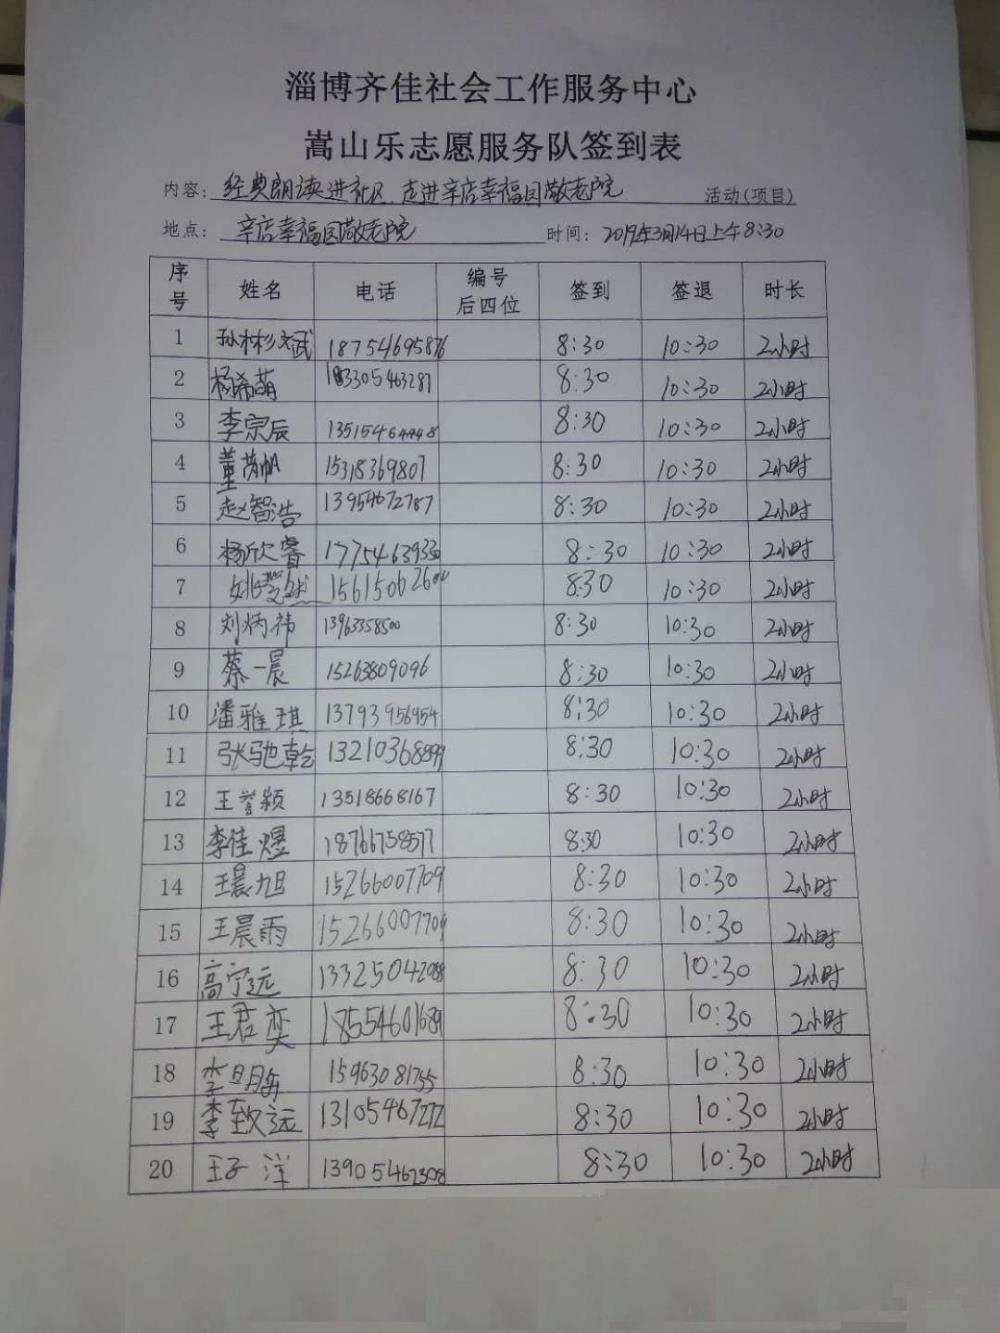 淄博齐佳社会工作服务中心
嵩山乐志愿服务队签到表
内容：经典朗读进社区，走进辛店幸福园敬老院 活动(项目)
地点：辛店幸福园敬老院 时间：2019年3月14日上午8:30
序号 姓名 电话 编号后四位 签到 签退 时长
1 孙彬彬 18754695876 8:30 10:30 2小时
2 杨希萌 8:30 10:30 2小时
3 李宗辰 13515464448 8:30 10:30 2小时
4 董芮帆 15318369807 8:30 10:30 2小时
5 赵智浩 13954672787 8:30 10:30 2小时
6 杨欣睿 17754639330 8:30 10:30 2小时
7 8:30 10:30 2小时
8 刘炳祎 13963358500 8:30 10:30 2小时
9 蔡一晨 15263809096 8:30 10:30 2小时
10 潘雅琪 13793956954 8:30 10:30 2小时
11 张驰乾 13210368899 8:30 10:30 2小时
12 王誉颖 13518668167 8:30 10:30 2小时
13 李佳煜 18766758577 8:30 10:30 2小时
14 王晨旭 15266007709 8:30 10:30 2小时
15 王晨雨 15266007709 8:30 10:30 2小时
16 高宁远 8:30 10:30 2小时
17 王君奕 8:30 10:30 2小时
18 15963081755 8:30 10:30 2小时
19 李致远 13105467272 8:30 10:30 2小时
20 王子洋 13905462308 8:30 10:30 2小时